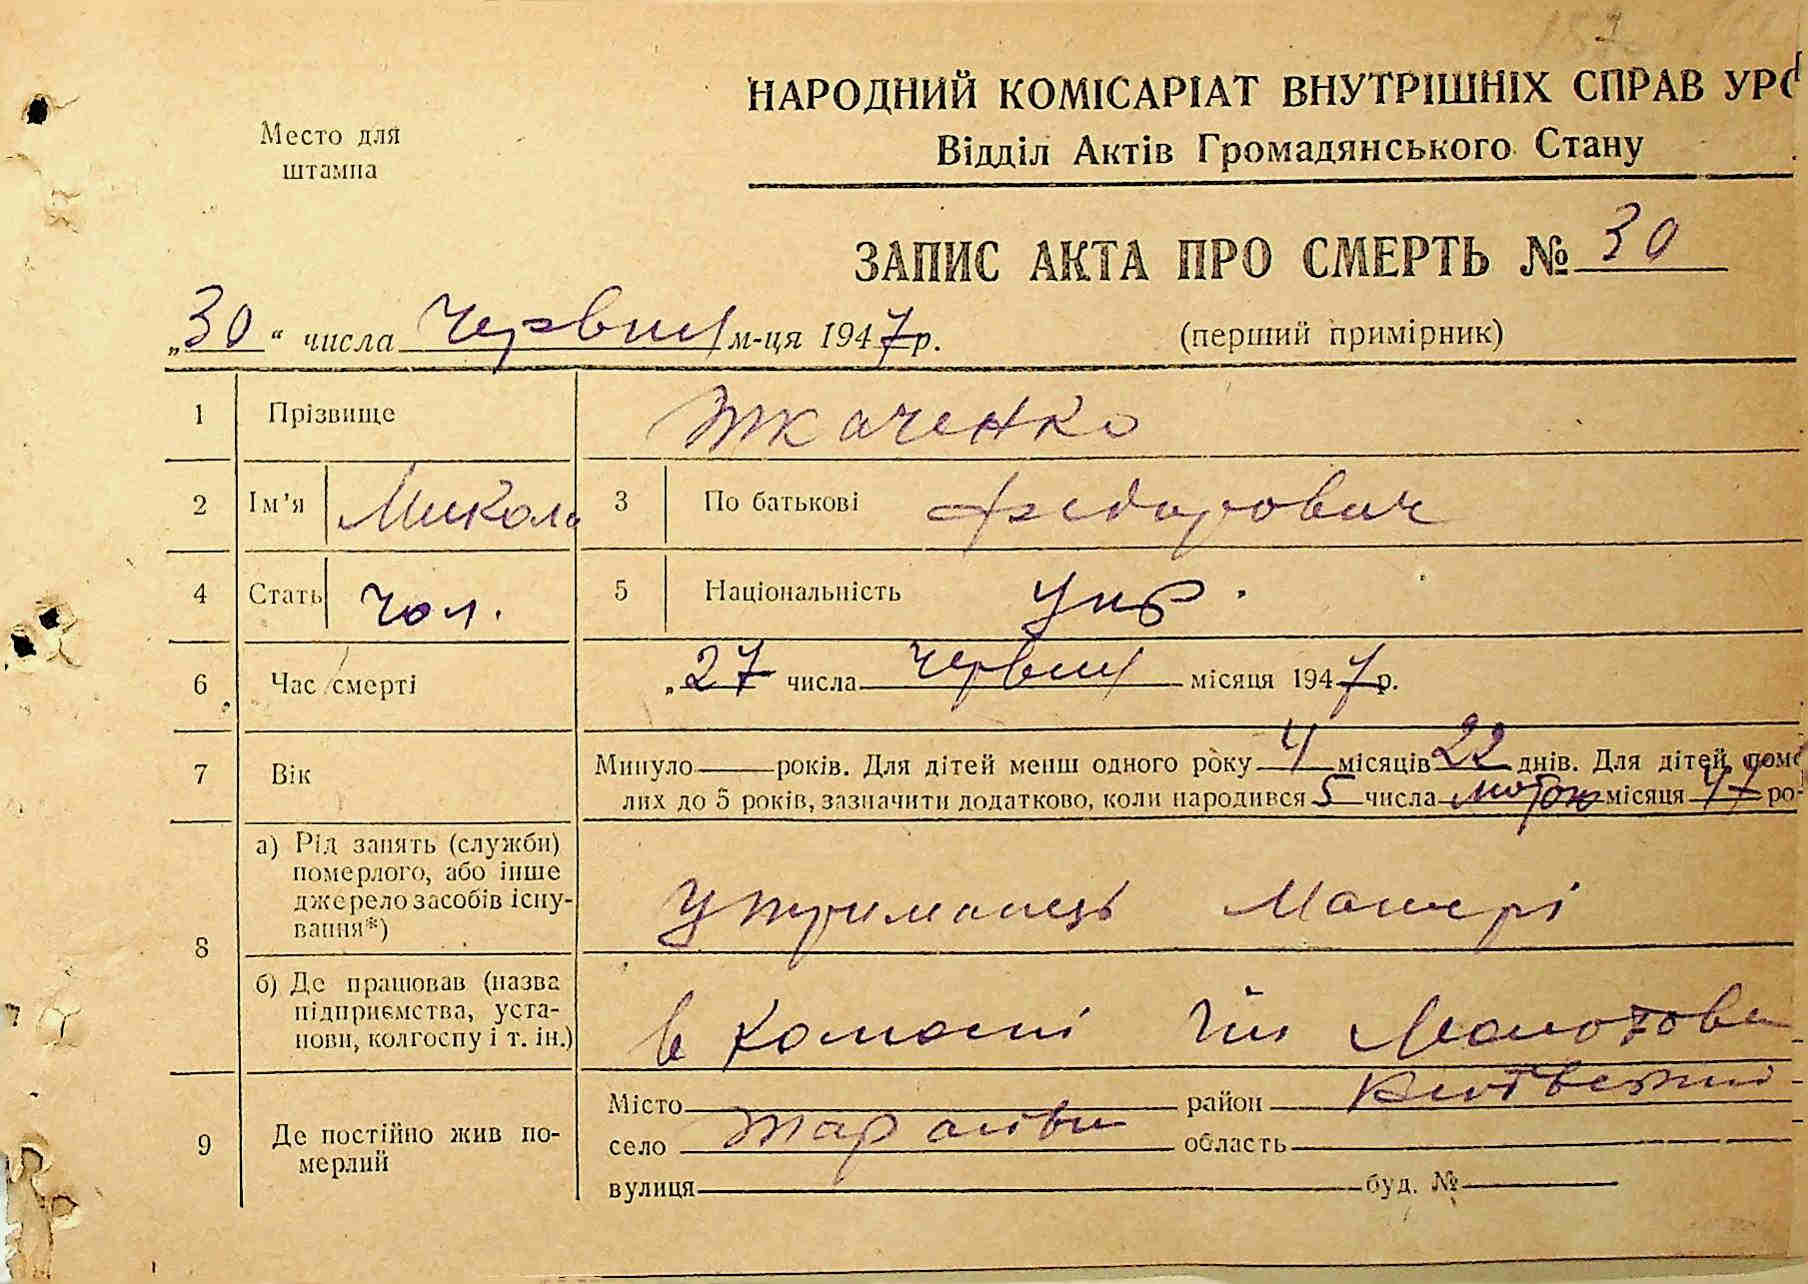 Место для
штампа
НАРОДНИЙ КОМІСАРІАТ ВНУТРІШНІХ СПРАВ УРС
Відділ Актів Громадянського Стану
ЗАПИС АКТА ПРО СМЕРТЬ № 30
„30“ числа Червня м-ця 1947 р.
(перший примірник)
1 Прізвище Ткаченко
2 Ім'я Микола 3 По батькові Федорович
4 Стать чол. 5 Національність укр.
6 Час смерті „27 числа Червня місяця 1947 р.
7 Вік Минуло — років. Для дітей менш одного року 4 місяців 22 днів. Для дітей, поме
лих до 5 років, зазначити додатково, коли народився 5 числа лютого місяця 47 ро-
8 а) Рід занять (служби)
померлого, або інше
джерело засобів існу-
вання*)
Утриманець матері
б) Де працював (назва
підприємства, уста-
нови, колгоспу і т. ін.)
в ім Молотова
9 Де постійно жив по-
мерлий
Місто район
село область
вулиця буд. №